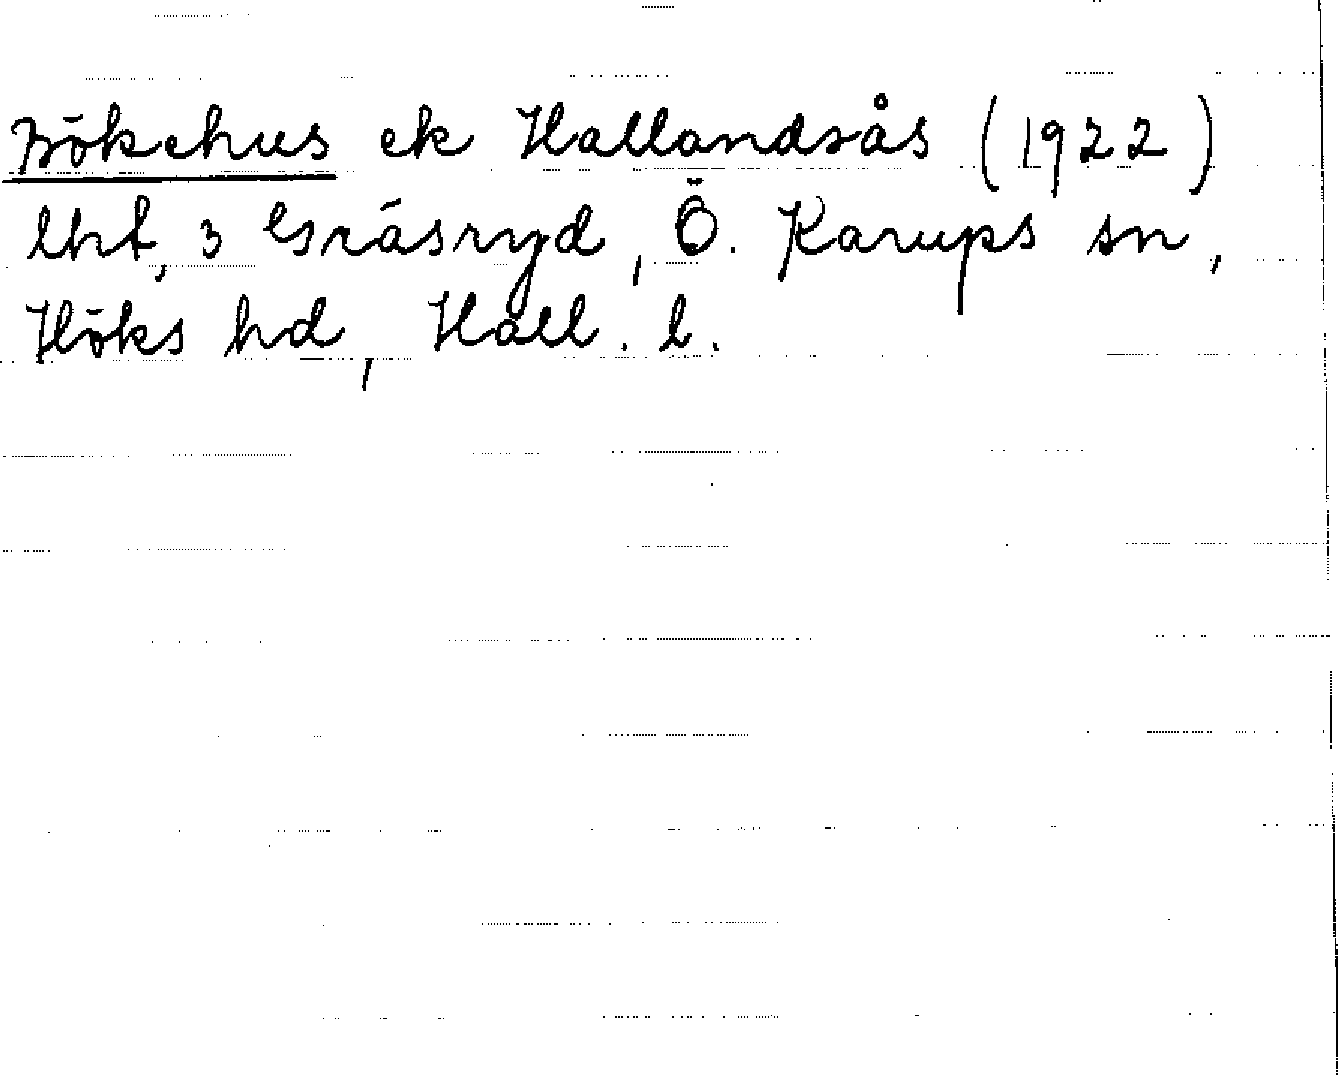 Bökehus ek Hallandsås (1922)
lht, 3 Gräsryd, Ö. Karups sn,
Höks hd, Hall. l.